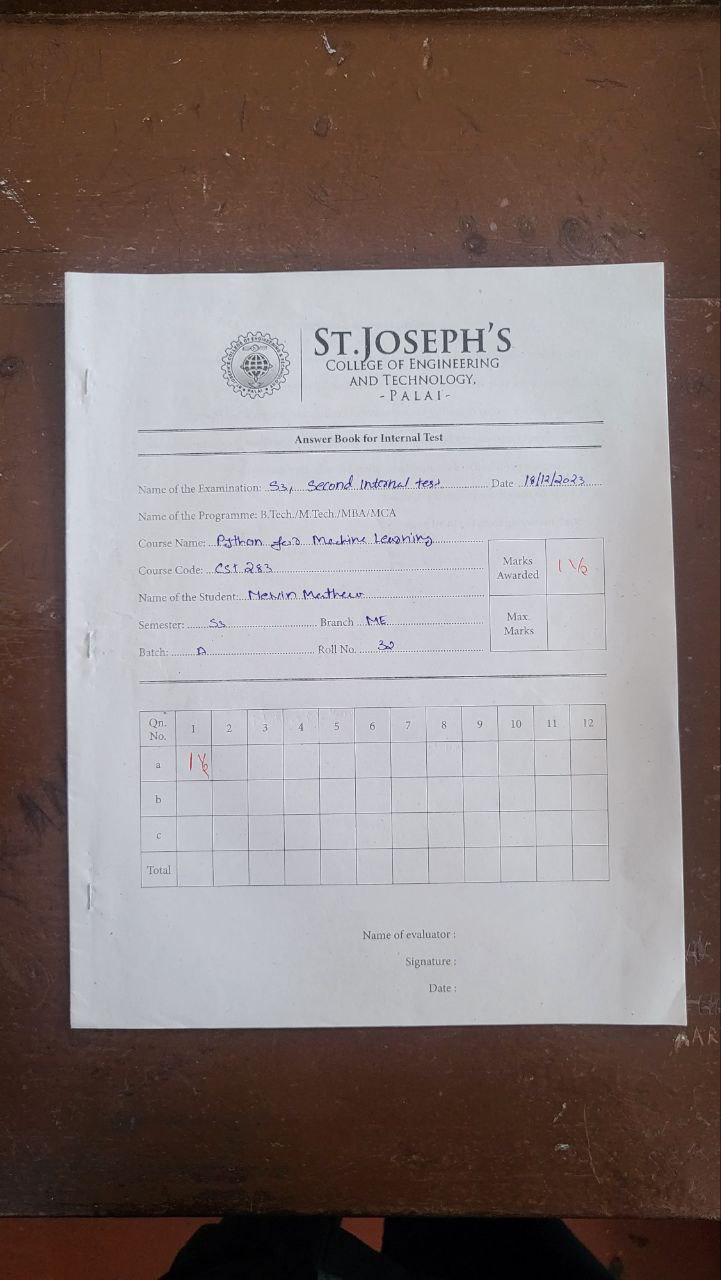 ST.JOSEPH'S
COLLEGE OF ENGINEERING
AND TECHNOLOGY,
- PALAI -
Answer Book for Internal Test
Name of the Examination: S3, Second Internal test Date 18/12/2023
Name of the Programme: B.Tech./M.Tech./MBA/MCA
Course Name: Python for Machine Learning
Course Code: CST 283
Marks Awarded 1 1/2
Name of the Student: Melvin Mathew
Semester: S3 Branch ME
Max. Marks
Batch: A Roll No. 32
Qn. No. 1 2 3 4 5 6 7 8 9 10 11 12
a 1 1/2
b
c
Total
Name of evaluator :
Signature :
Date :